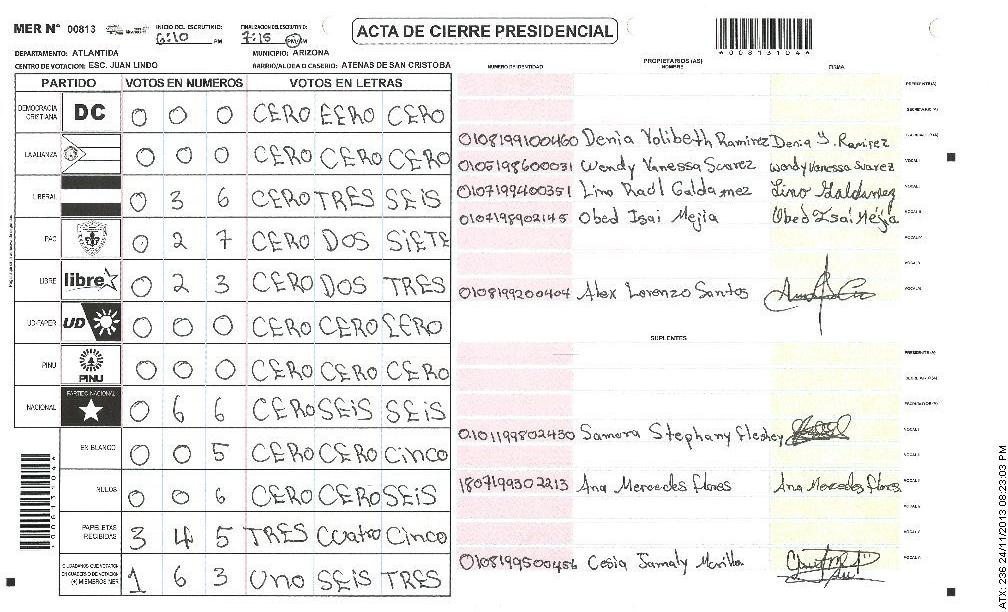 MER Nº 00813 INICIO DEL ESCRUTINIO: 6:10 PM FINALIZACION DEL ESCRUTINIO: 7:15 PM/AM
ACTA DE CIERRE PRESIDENCIAL
*00813104*
DEPARTAMENTO: ATLANTIDA MUNICIPIO: ARIZONA
CENTRO DE VOTACION: ESC. JUAN LINDO BARRIO/ALDEA O CASERIO: ATENAS DE SAN CRISTOBA
PARTIDO VOTOS EN NUMEROS VOTOS EN LETRAS
DEMOCRACIA CRISTIANA DC 0 0 0 CERO CERO CERO
LA ALIANZA 0 0 0 CERO CERO CERO
LIBERAL 0 3 6 CERO TRES SEIS
PAC 0 2 7 CERO DOS SIETE
LIBRE libre 0 2 3 CERO DOS TRES
UD-FAPER UD 0 0 0 CERO CERO CERO
PINU PINU 0 0 0 CERO CERO CERO
NACIONAL PARTIDO NACIONAL 0 6 6 CERO SEIS SEIS
EN BLANCO 0 0 5 CERO CERO Cinco
NULOS 0 0 6 CERO CERO SEIS
PAPELETAS RECIBIDAS 3 4 5 TRES Cuatro Cinco
CIUDADANOS QUE VOTARON EN CUADERNO DE VOTACION (+) MIEMBROS MER 1 6 3 Uno SEIS TRES
PROPIETARIOS (AS)
NUMERO DE IDENTIDAD NOMBRE FIRMA
PRESIDENTE (A)
SECRETARIO (A)
0108199100460 Denia Yolibeth Ramirez Denia Y. Ramirez
0105198600031 Wendy Vanessa Suarez Wendy Vanessa Suarez VOCAL I
0107199400351 Lino Raúl Galdamez Lino Galdamez
0107198902145 Obed Isai Mejia Obed Isaí Mejía
0108199200404 Alex Lorenzo Santos
SUPLENTES
PRESIDENTE (A)
SECRETARIO (A)
0101199802430 Samora Stephany
1807199302213 Ana Mercedes Flores Ana Mercedes Flores
0108199500456 Cesia Samaly
*00813104*
ATX: 236 24/11/2013 08:23:03 PM